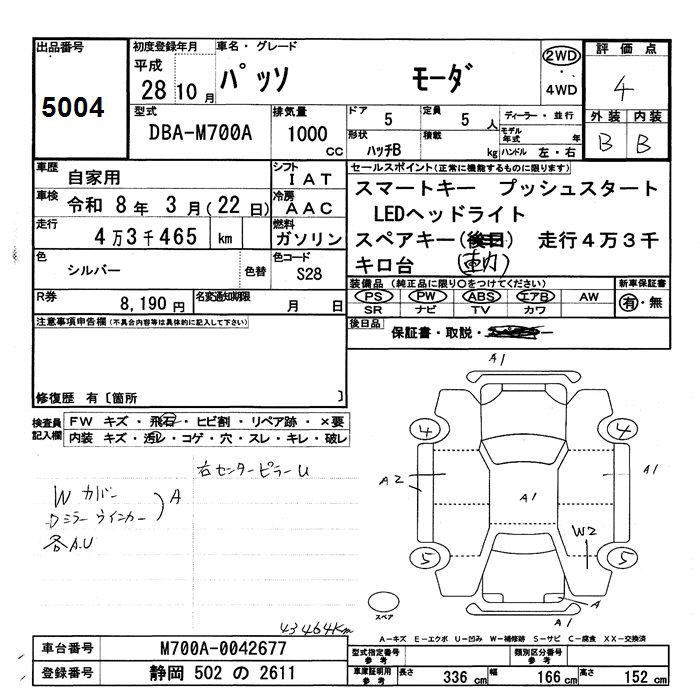 出品番号
5004
初度登録年月
平成
28 10 月
車名・グレード
パッソ モーダ
2WD
4WD
評価点
4
外装 内装
B B
型式
DBA-M700A
排気量
1000 CC
ドア 5
定員 5 人
形状 ハッチB
積載 kg
ディーラー・並行
モデル年式 年
ハンドル 左・右
車歴 自家用
シフト IAT
車検 令和 8 年 3 月 (22 日)
冷房 AAC
走行 4万3千465 km
燃料 ガソリン
色 シルバー 色替
色コード S28
R券 8,190 円
名変通知期限 月 日
セールスポイント(正常に機能するものに限ります)
スマートキー プッシュスタート
LEDヘッドライト
スペアキー(後日) 走行4万3千
キロ台 (動)
装備品 (純正品に限り○をつけてください)
新車保証書
PS PW ABS エアB AW
SR ナビ TV カワ
有・無
後日品
保証書・取説・スペアキー
注意事項申告欄(不具合内容等は具体的に記入して下さい)
修復歴 有〔箇所 〕
検査員記入欄
FW キズ・飛石・ヒビ割・リペア跡・×要
内装 キズ・汚レ・コゲ・穴・スレ・キレ・破レ
右センターピラーU
Wカバー
Dミラーウインカー
)A
各A.U
43464km
A1
4
4
A2
A1
A1
W2
5
5
A
A1
スペア
A-キズ E-エクボ U-凹み W-補修跡 S-サビ C-腐食 XX-交換済
車台番号 M700A-0042677
登録番号 静岡 502 の 2611
型式指定番号 参考
類別区分番号 参考
車庫証明用 参考
長さ 336 cm
幅 166 cm
高さ 152 cm